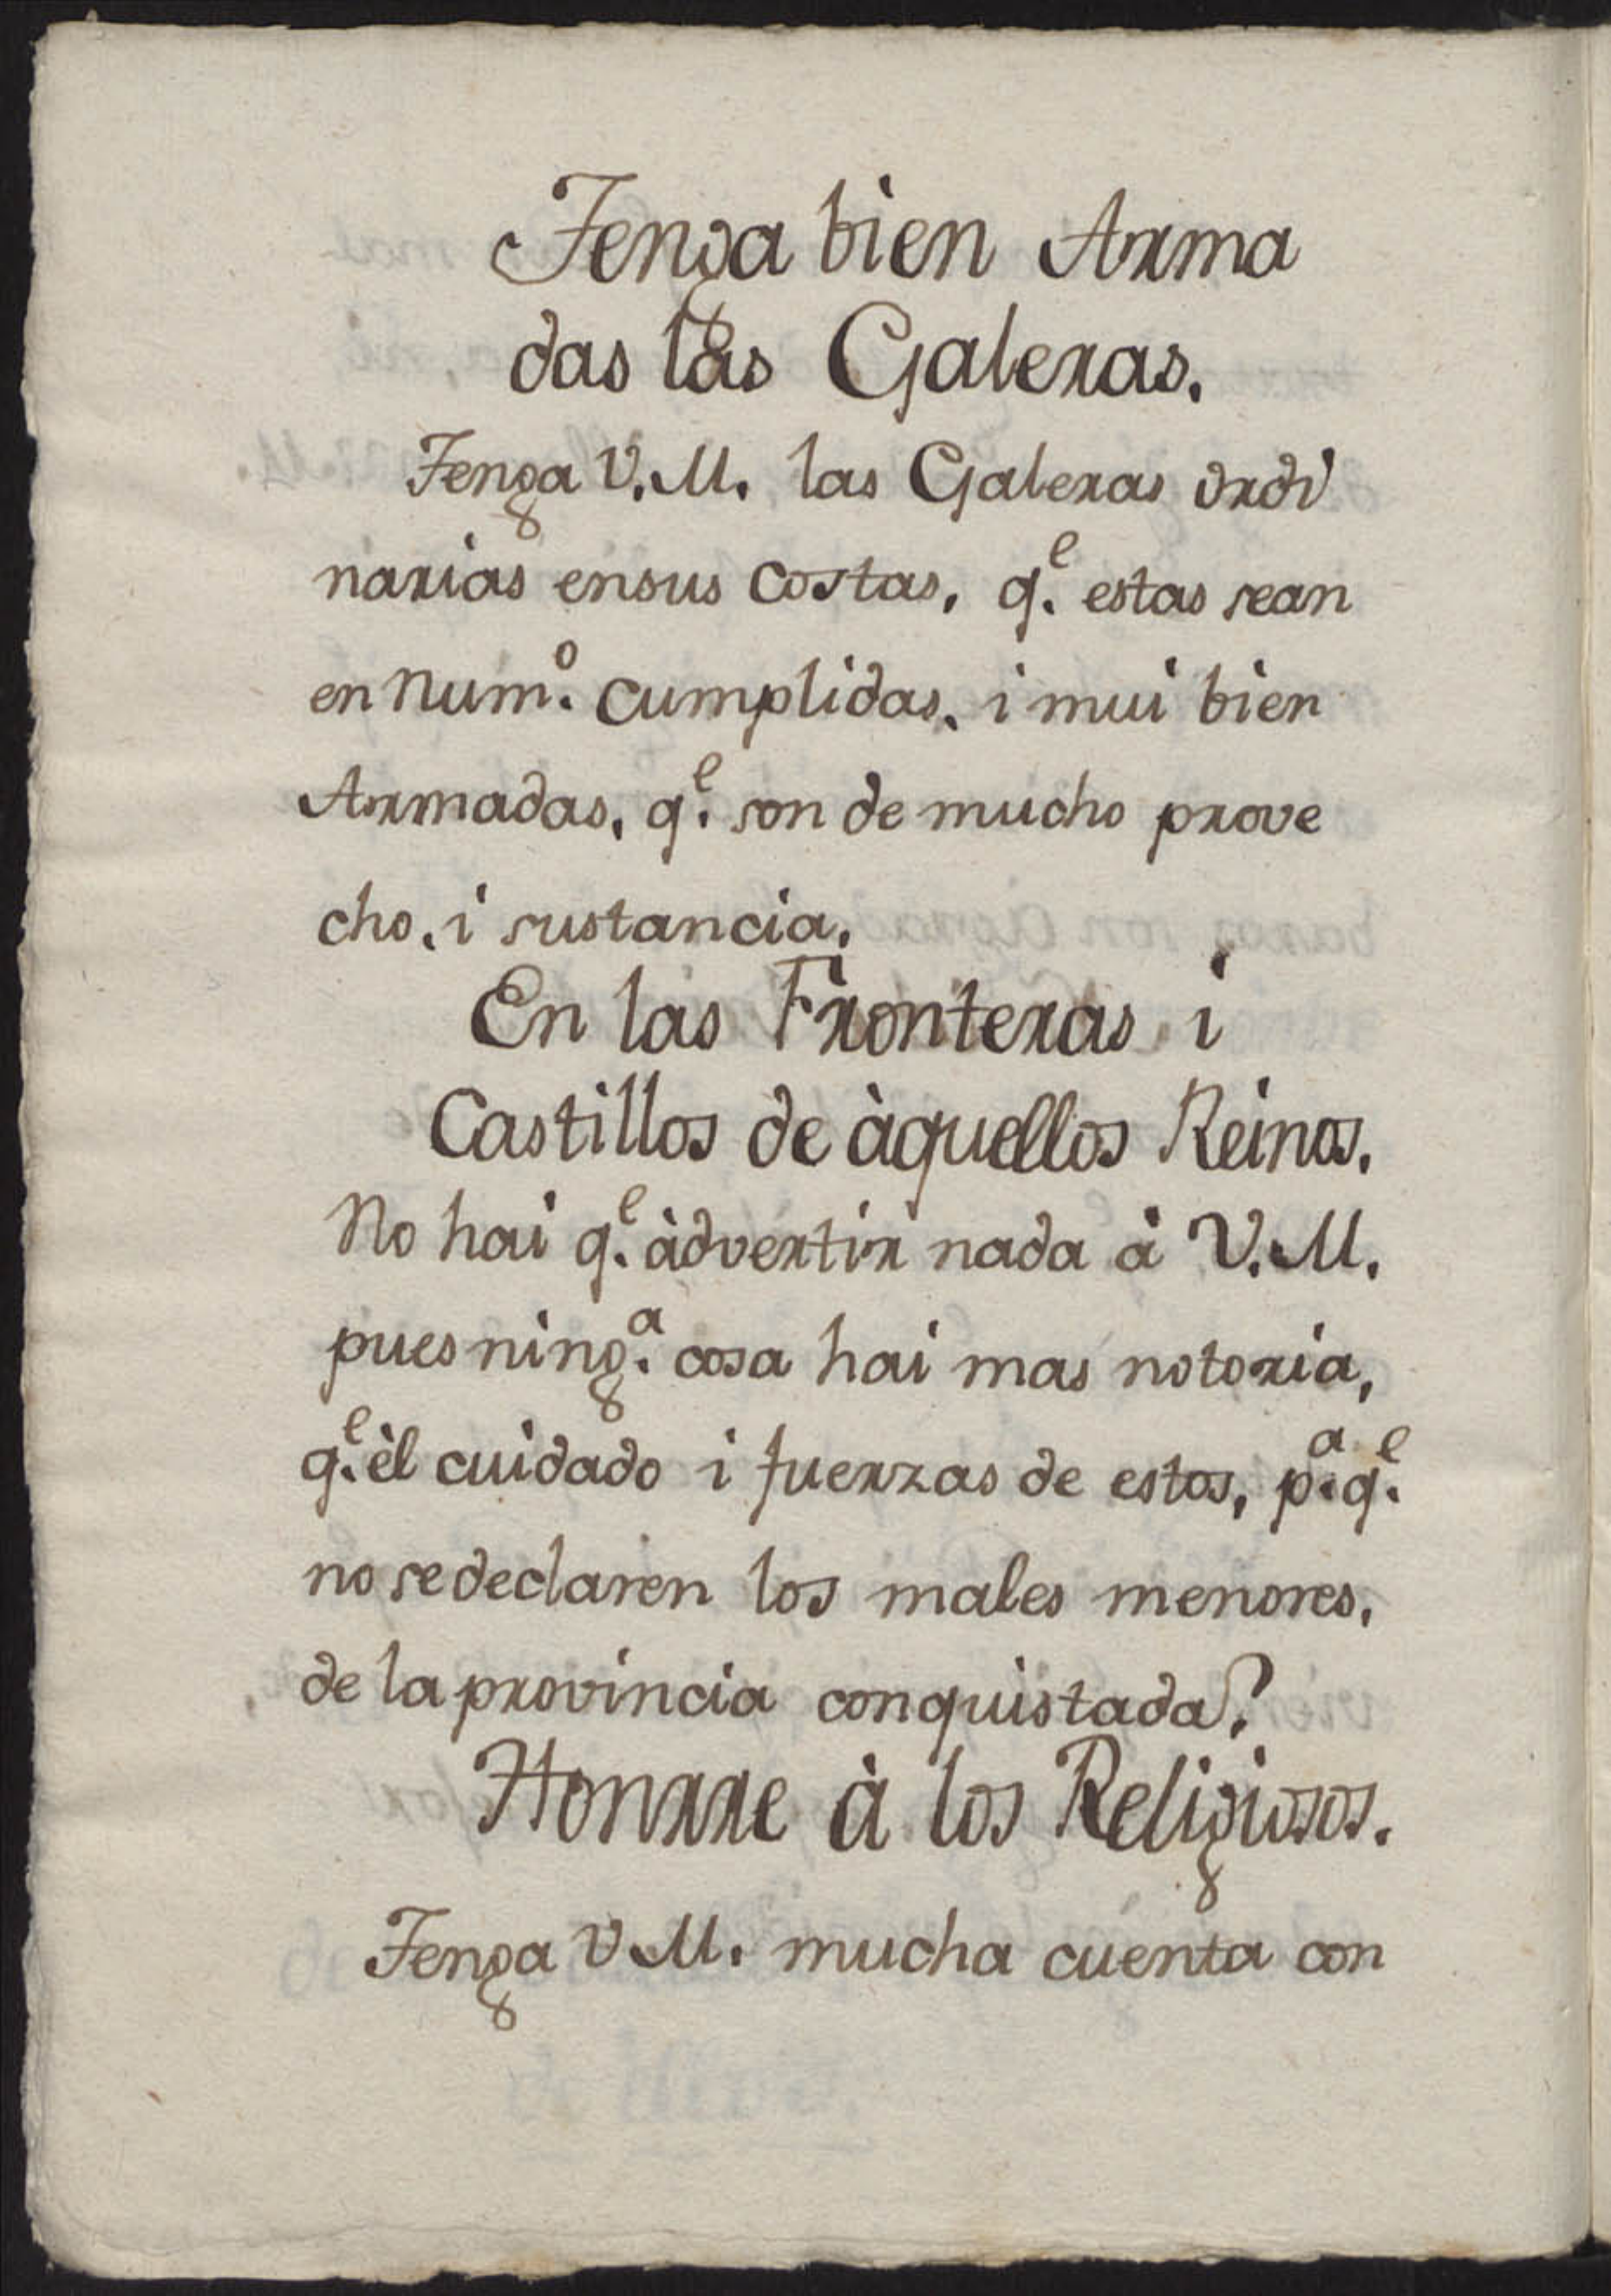 Tenga bien Arma
das las Galeras.
Tenga V.M. las Galeras ordi
narias ensus costas, q.^e estas sean
en num.^o cumplidas, i mui bien
Armadas, q.^e son de mucho prove
cho, i sustancia.
En las Fronteras i
Castillos de àquellos Reinos.
No hai q.^e àdvertir nada à V.M.
pues ning.^a cosa hai mas notoria,
q.^e èl cuidado i fuerzas de estos, p.^a q.^e
no sedeclaren los males menores,
de la provincia conquistada?
Honrre à los Religiosos.
Tenga V.M. mucha cuenta con